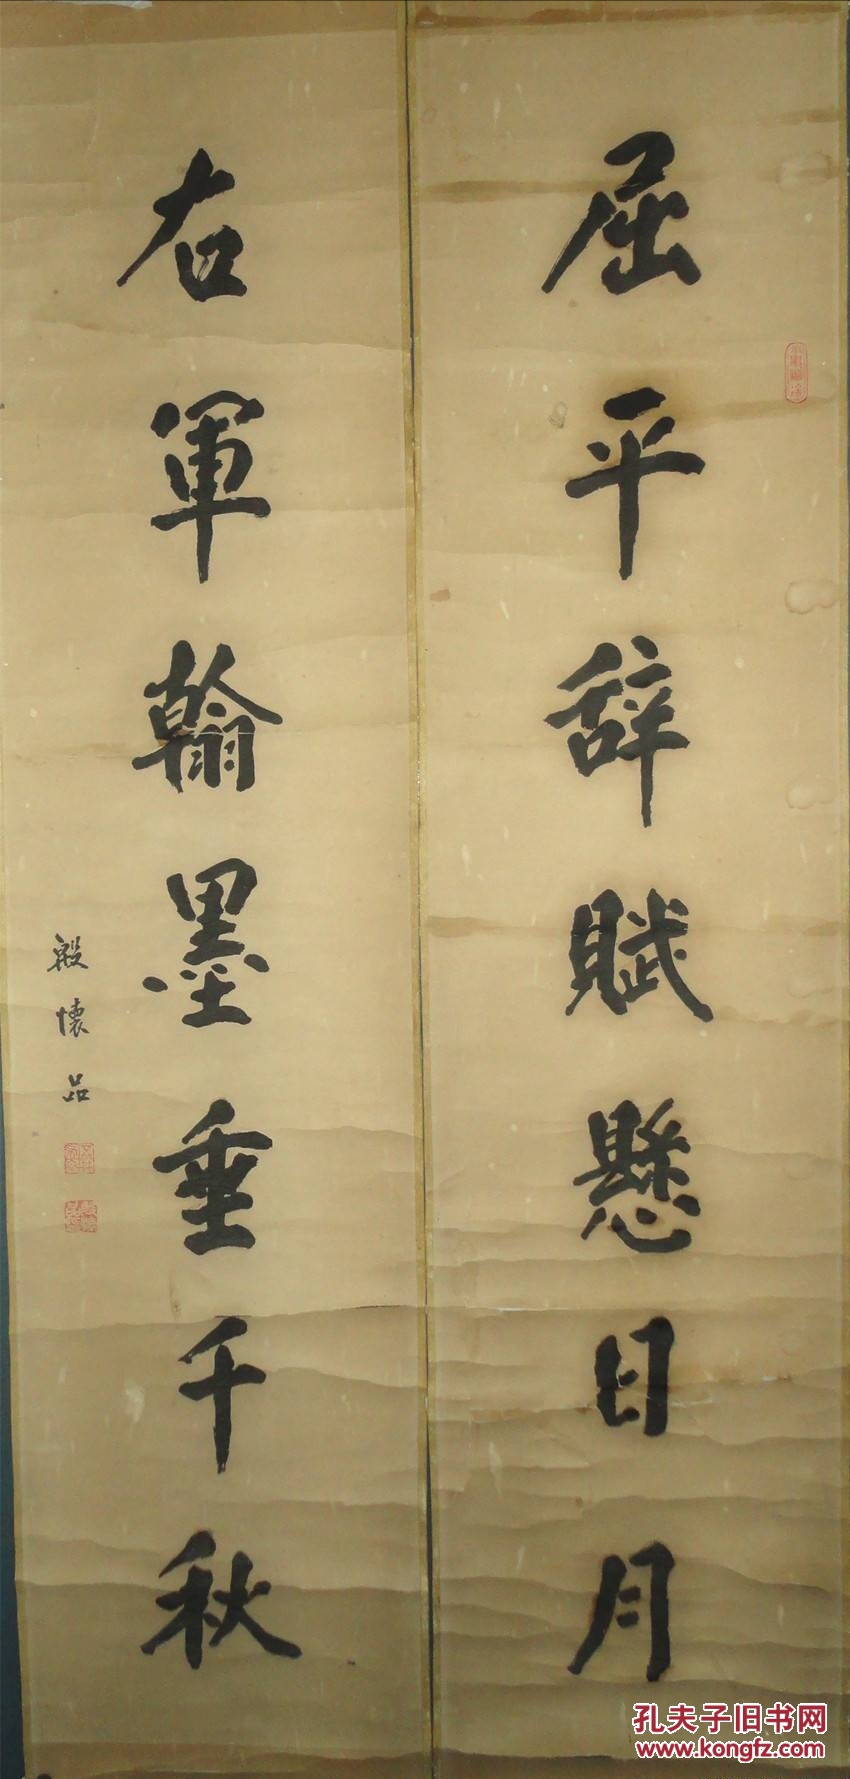 屈平辭賦懸日月
右軍翰墨垂千秋
殷懷品
孔夫子旧书网
www.kongfz.com